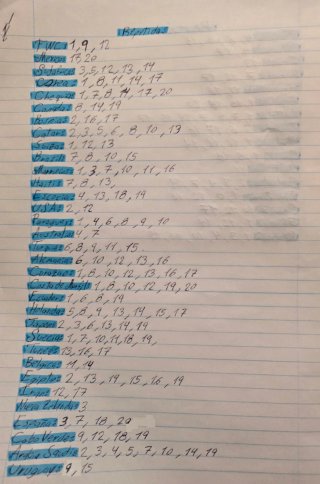 Repetidas
FWC: 1, 9, 12
Mexico: 17, 20
Sudafrica: 3, 5, 12, 13, 14
Corea: 1, 8, 11, 14, 17
Chequia: 1, 7, 8, 14, 17, 20
Canada: 8, 14, 19
Bosnia: 2, 16, 17
Catar: 2, 3, 5, 6, 8, 10, 13
Suiza: 1, 12, 13
Brasil: 7, 8, 10, 15
Marruecos: 1, 3, 7, 10, 11, 16
Haiti: 7, 8, 13,
Escocia: 4, 13, 18, 19
USA: 2, 12
Paraguay: 1, 4, 6, 8, 9, 10
Australia: 4, 7
Turquia: 6, 8, 9, 11, 15
Alemania: 6, 10, 12, 13, 16
Curazao: 1, 8, 10, 12, 13, 16, 17
Costa de Marfil: 1, 8, 10, 12, 19, 20
Ecuador: 1, 6, 8, 19
Holanda: 5, 8, 9, 13, 14, 15, 17
Japon: 2, 3, 6, 13, 14, 19
Suecia: 1, 7, 10, 11, 18, 19,
Tunez: 13, 16, 17
Belgica: 11, 14
Egipto: 2, 13, 14, 15, 16, 19
Iran: 12, 17
Nueva Zelanda: 3
España: 3, 7, 18, 20
Cabo Verde: 9, 12, 18, 19
Arabia Saudita: 2, 3, 4, 5, 7, 10, 14, 19
Uruguay: 9, 15